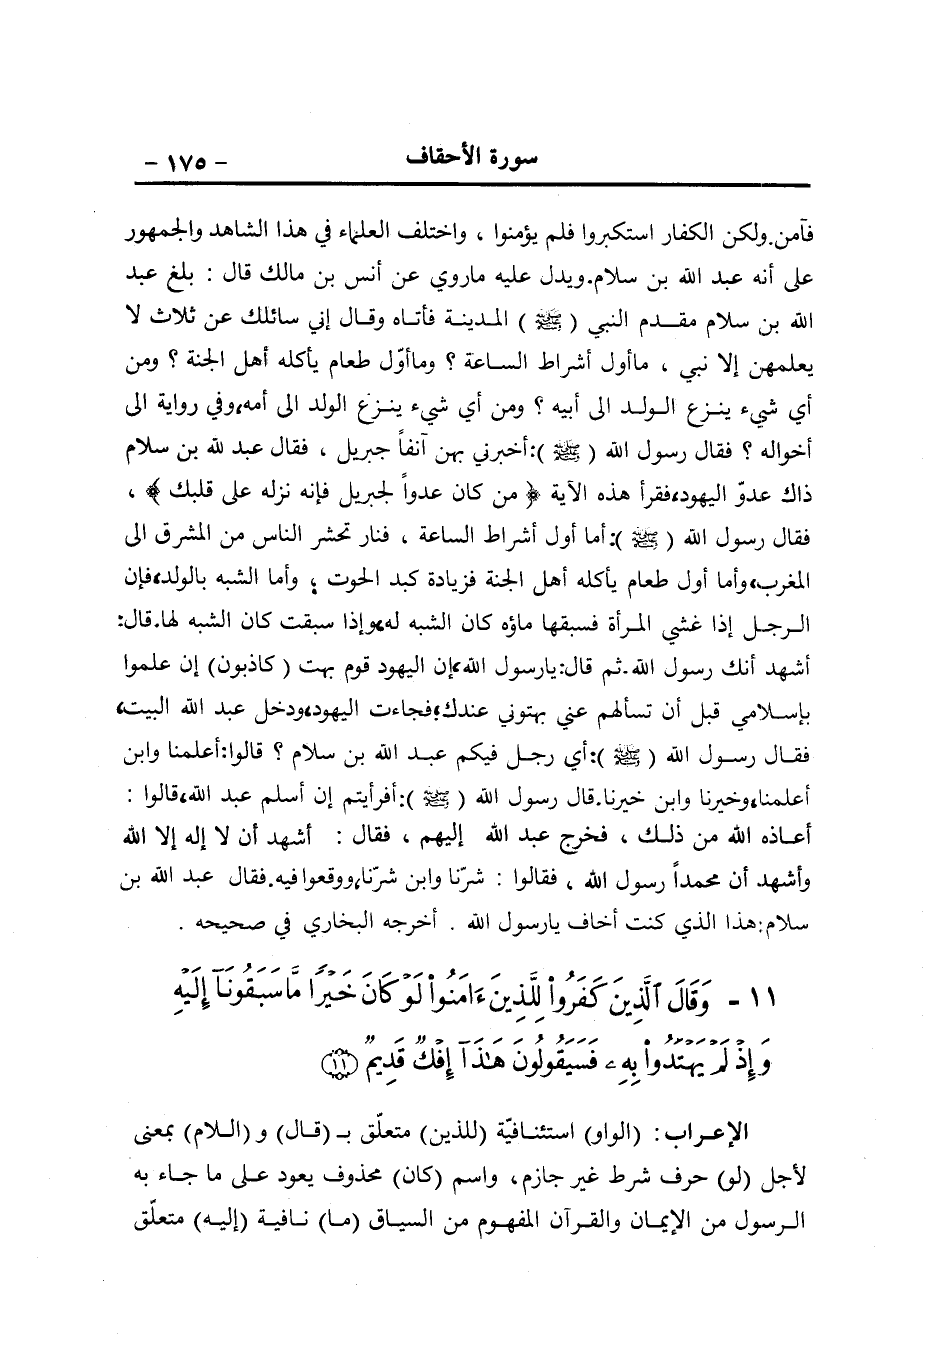 سورة الأحقاف - ١٧٥ -
فآمن.ولكن الكفار استكبروا فلم يؤمنوا ، واختلف العلماء في هذا الشاهد والجمهور
على أنه عبد الله بن سلام.ويدل عليه ماروي عن أنس بن مالك قال : بلغ عبد
الله بن سلام مقدم النبي ( ﷺ ) المدينة فأتاه وقال إني سائلك عن ثلاث لا
يعلمهن إلا نبي ، ماأول أشراط الساعة ؟ وماأوّل طعام يأكله أهل الجنة ؟ ومن
أي شيء ينزع الولد الى أبيه ؟ ومن أي شيء ينزع الولد الى أمه،وفي رواية الى
أخواله ؟ فقال رسول الله ( ﷺ ):أخبرني بهن آنفاً جبريل ، فقال عبد لله بن سلام
ذاك عدوّ اليهود،فقرأ هذه الآية ﴿ من كان عدواً لجبريل فإنه نزله على قلبك ﴾ ،
فقال رسول الله ( ﷺ ):أما أول أشراط الساعة ، فنار تحشر الناس من المشرق الى
المغرب،وأما أول طعام يأكله أهل الجنة فزيادة كبد الحوت ؛ وأما الشبه بالولد،فإن
الرجل إذا غشي المرأة فسبقها ماؤه كان الشبه له،وإذا سبقت كان الشبه لها.قال:
أشهد أنك رسول الله.ثم قال:يارسول الله،إن اليهود قوم بهت ( كاذبون) إن علموا
بإسلامي قبل أن تسألهم عني بهتوني عندك،فجاءت اليهود،ودخل عبد الله البيت،
فقال رسول الله ( ﷺ ):أي رجل فيكم عبد الله بن سلام ؟ قالوا:أعلمنا وابن
أعلمنا،وخيرنا وابن خيرنا.قال رسول الله ( ﷺ ):أفرأيتم إن أسلم عبد الله،قالوا :
أعاذه الله من ذلك ، فخرج عبد الله إليهم ، فقال : أشهد أن لا إله إلا الله
وأشهد أن محمداً رسول الله ، فقالوا : شرّنا وابن شرّنا،ووقعوا فيه.فقال عبد الله بن
سلام:هذا الذي كنت أخاف يارسول الله . أخرجه البخاري في صحيحه .
١١ - وَقَالَ ٱلَّذِينَ كَفَرُوا۟ لِلَّذِينَ ءَامَنُوا۟ لَوْ كَانَ خَيْرًا مَّا سَبَقُونَآ إِلَيْهِ
وَإِذْ لَمْ يَهْتَدُوا۟ بِهِۦ فَسَيَقُولُونَ هَٰذَآ إِفْكٌ قَدِيمٌ ﴿١١﴾
الإعراب: (الواو) استئنافيّة (للذين) متعلّق بـ (قال) و (اللام) بمعنى
لأجل (لو) حرف شرط غير جازم، واسم (كان) محذوف يعود على ما جاء به
الرسول من الإيمان والقرآن المفهوم من السياق (ما) نافية (إليه) متعلّق